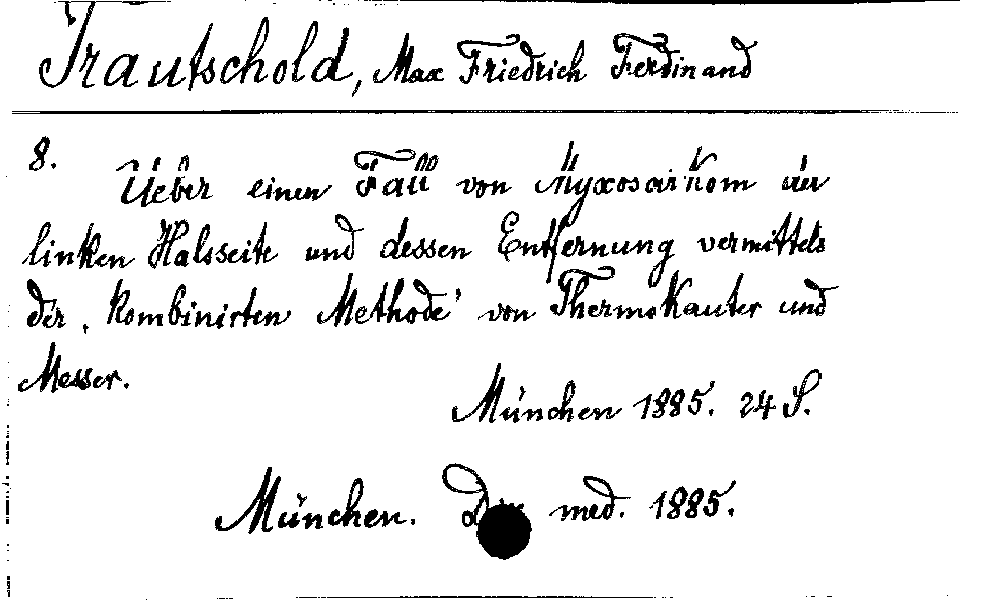 Trautschold, Max Friedrich Ferdinand
8.
Ueber einen Fall von Myxosarkom der
linken Halsseite und dessen Entfernung vermittels
der ‚kombinirten Methode‘ von Thermokauter und
Messer.
München 1885. 24 S.
München. med. 1885.